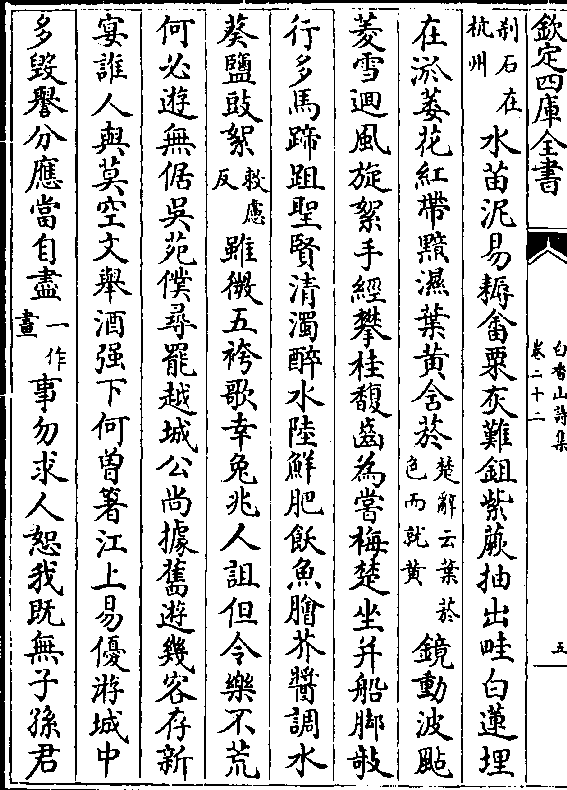 欽定四庫全書
白香山詩集
卷二十二
五
剡石在杭州水苗泥易耨畬粟灰難鉏紫蕨抽出畦白蓮埋
在淤萎花紅帶黯濕葉黄含菸楚辭云葉菸色而就黄鏡動波颭
菱雪迴風旋絮手經攀桂馥齒為嘗梅楚坐并船脚攲
行多馬蹄跙聖賢清濁醉水陸鮮肥飫魚膾芥醬調水
葵鹽豉絮敕慮反雖微五袴歌幸免兆人詛但令樂不荒
何必遊無倨吳苑僕尋罷越城公尚據舊遊幾客存新
宴誰人與莫空文舉酒强下何曾箸江上易優游城中
多毀譽分應當自盡一作畫事勿求人恕我既無子孫君